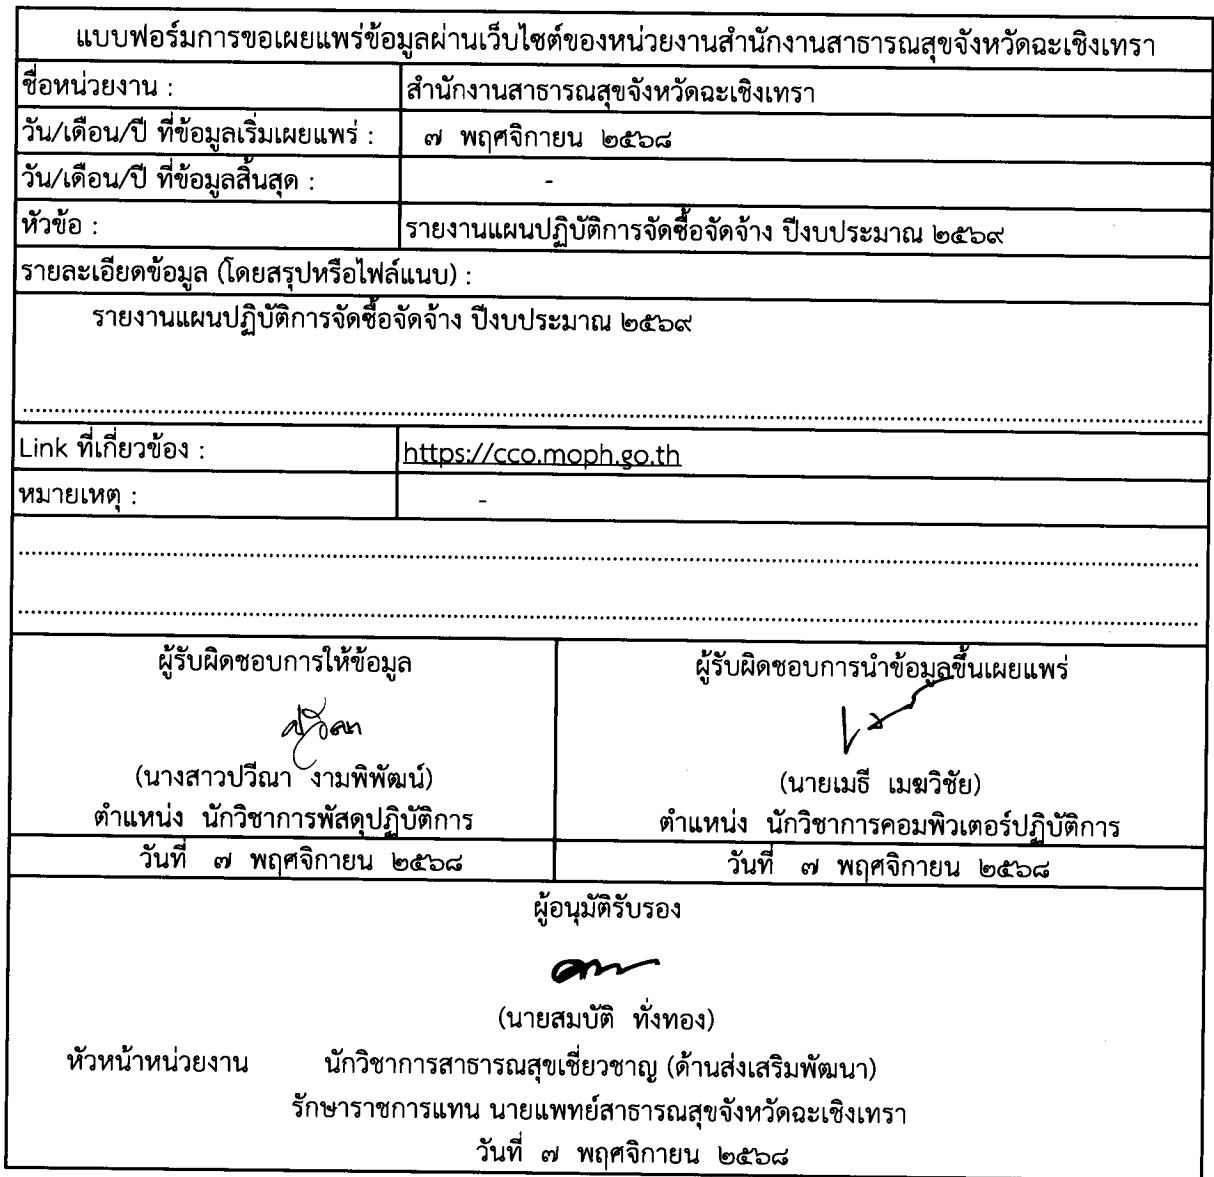 แบบฟอร์มการขอเผยแพร่ข้อมูลผ่านเว็บไซต์ของหน่วยงานสำนักงานสาธารณสุขจังหวัดฉะเชิงเทรา
ชื่อหน่วยงาน : สำนักงานสาธารณสุขจังหวัดฉะเชิงเทรา
วัน/เดือน/ปี ที่ข้อมูลเริ่มเผยแพร่ : ๗ พฤศจิกายน ๒๕๖๘
วัน/เดือน/ปี ที่ข้อมูลสิ้นสุด : -
หัวข้อ : รายงานแผนปฏิบัติการจัดซื้อจัดจ้าง ปีงบประมาณ ๒๕๖๙
รายละเอียดข้อมูล (โดยสรุปหรือไฟล์แนบ) :
รายงานแผนปฏิบัติการจัดซื้อจัดจ้าง ปีงบประมาณ ๒๕๖๙
Link ที่เกี่ยวข้อง : https://cco.moph.go.th
หมายเหตุ : -
ผู้รับผิดชอบการให้ข้อมูล ผู้รับผิดชอบการนำข้อมูลขึ้นเผยแพร่
ปวีณา
(นางสาวปวีณา งามพิพัฒน์) (นายเมธี เมฆวิชัย)
ตำแหน่ง นักวิชาการพัสดุปฏิบัติการ ตำแหน่ง นักวิชาการคอมพิวเตอร์ปฏิบัติการ
วันที่ ๗ พฤศจิกายน ๒๕๖๘ วันที่ ๗ พฤศจิกายน ๒๕๖๘
ผู้อนุมัติรับรอง
(นายสมบัติ ทั่งทอง)
หัวหน้าหน่วยงาน นักวิชาการสาธารณสุขเชี่ยวชาญ (ด้านส่งเสริมพัฒนา)
รักษาราชการแทน นายแพทย์สาธารณสุขจังหวัดฉะเชิงเทรา
วันที่ ๗ พฤศจิกายน ๒๕๖๘